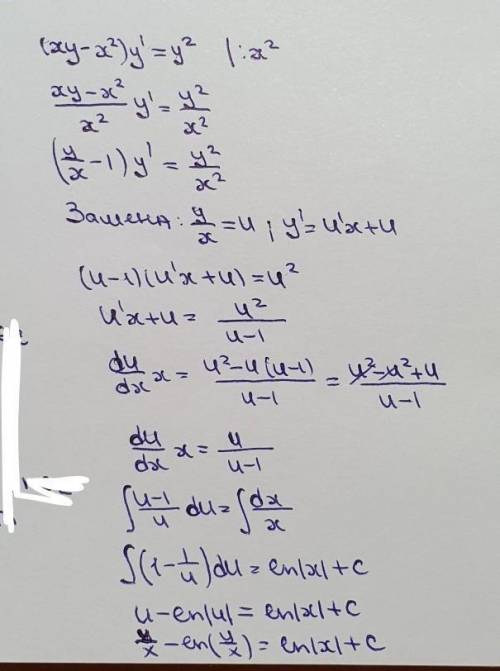 (xy-x²)y' = y² |:x²
(xy-x²)/x² y' = y²/x²
(y/x - 1)y' = y²/x²
Замена: y/x = u; y' = u'x+u
(u-1)(u'x+u) = u²
u'x+u = u²/(u-1)
du/dx x = (u²-u(u-1))/(u-1) = (u²-u²+u)/(u-1)
du/dx x = u/(u-1)
∫ (u-1)/u du = ∫ dx/x
∫(1-1/u)du = ln|x|+c
u-ln|u| = ln|x|+c
y/x - ln(y/x) = ln|x|+c